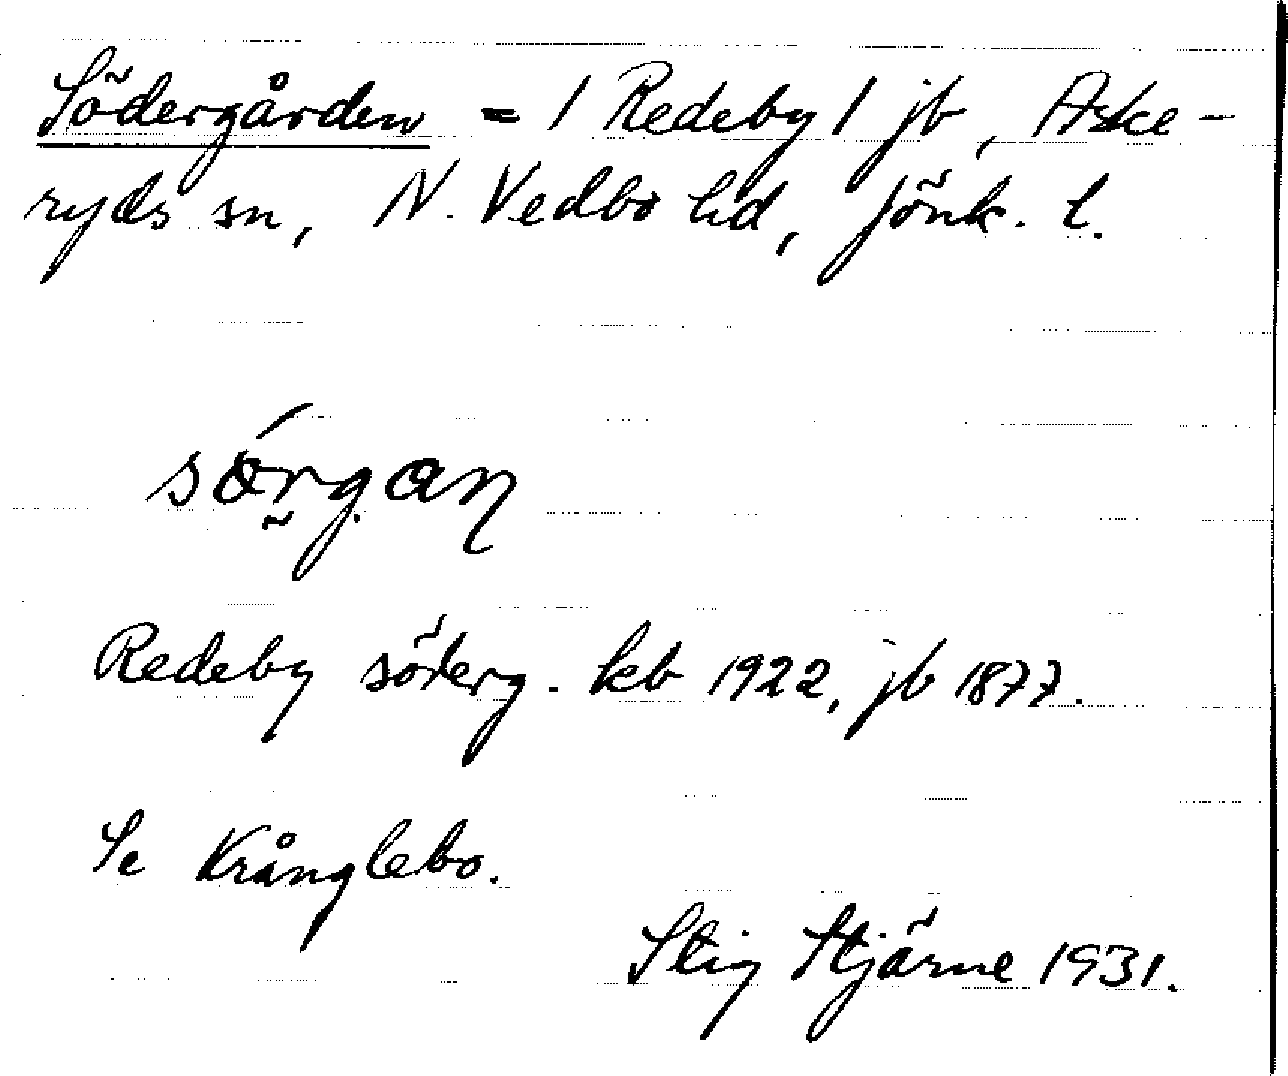 Södergården = 1 Redeby 1 jb, Aske-
ryds sn, N. Vedbo hd, Jönk. l.
Redeby söderg. kb 1922, jb 1877.
Se Krånglebo.
Stig Stjärne 1931.